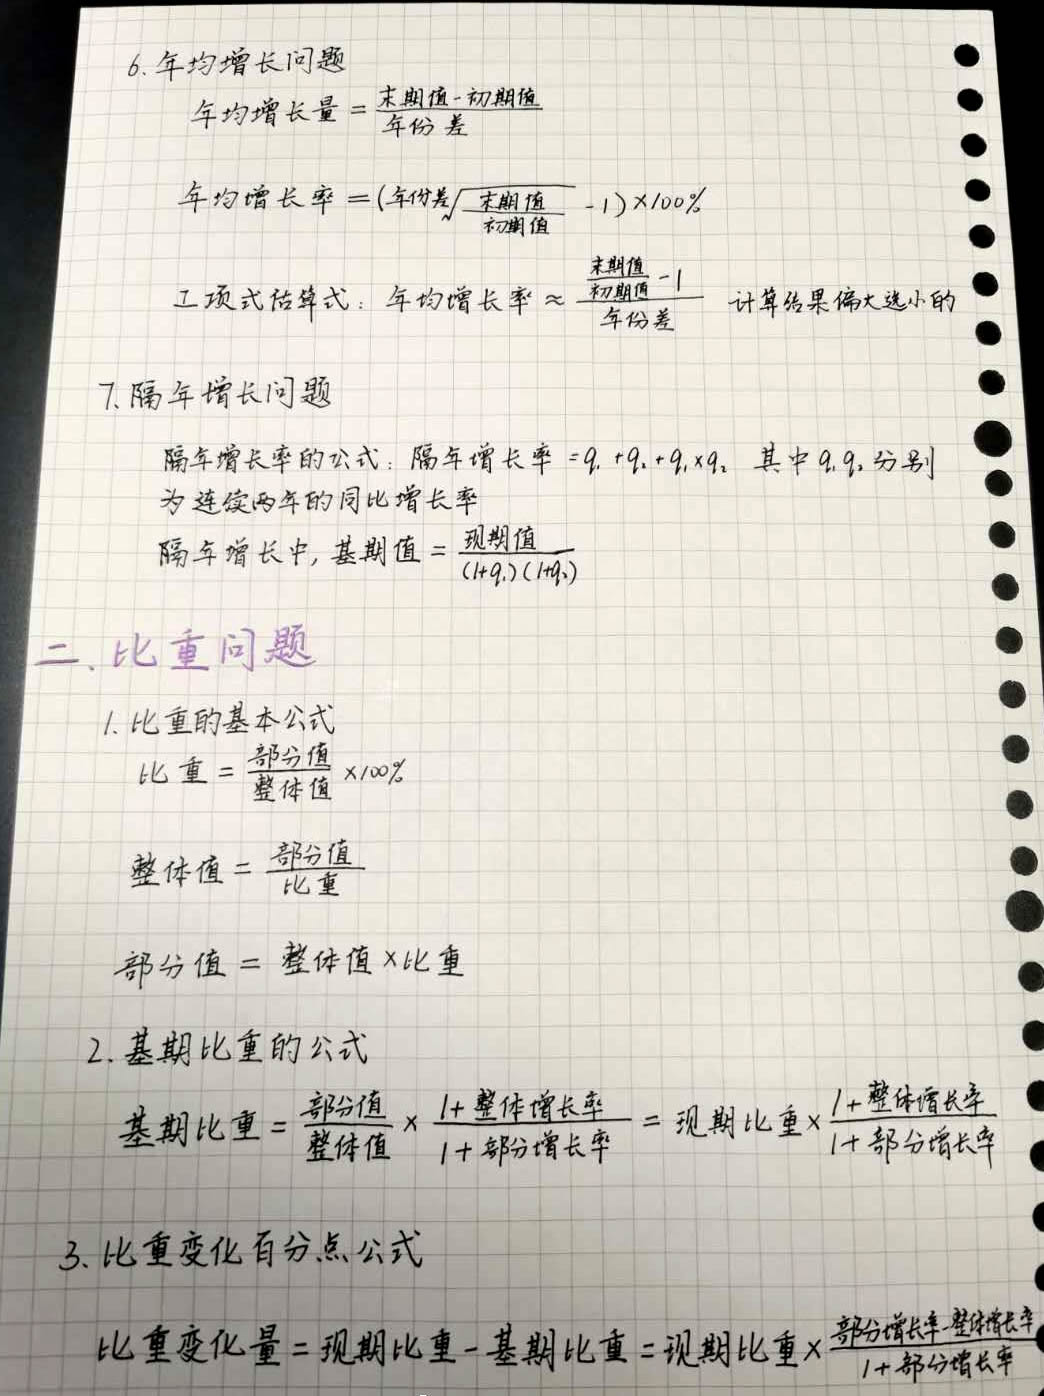 6.年均增长问题
年均增长量 = (末期值-初期值)/年份差
年均增长率 = (年份差√(末期值/初期值) -1)×100%
二项式估算式：年均增长率≈ (末期值/初期值 -1)/年份差 计算结果偏大选小的
7.隔年增长问题
隔年增长率的公式：隔年增长率=q₁+q₂+q₁×q₂ 其中q₁q₂分别
为连续两年的同比增长率
隔年增长中,基期值 = 现期值/(1+q₁)(1+q₂)
二、比重问题
1.比重的基本公式
比重 = 部分值/整体值 ×100%
整体值 = 部分值/比重
部分值 = 整体值×比重
2.基期比重的公式
基期比重 = 部分值/整体值 × (1+整体增长率)/(1+部分增长率) = 现期比重× (1+整体增长率)/(1+部分增长率)
3.比重变化百分点公式
比重变化量=现期比重-基期比重=现期比重× (部分增长率-整体增长率)/(1+部分增长率)